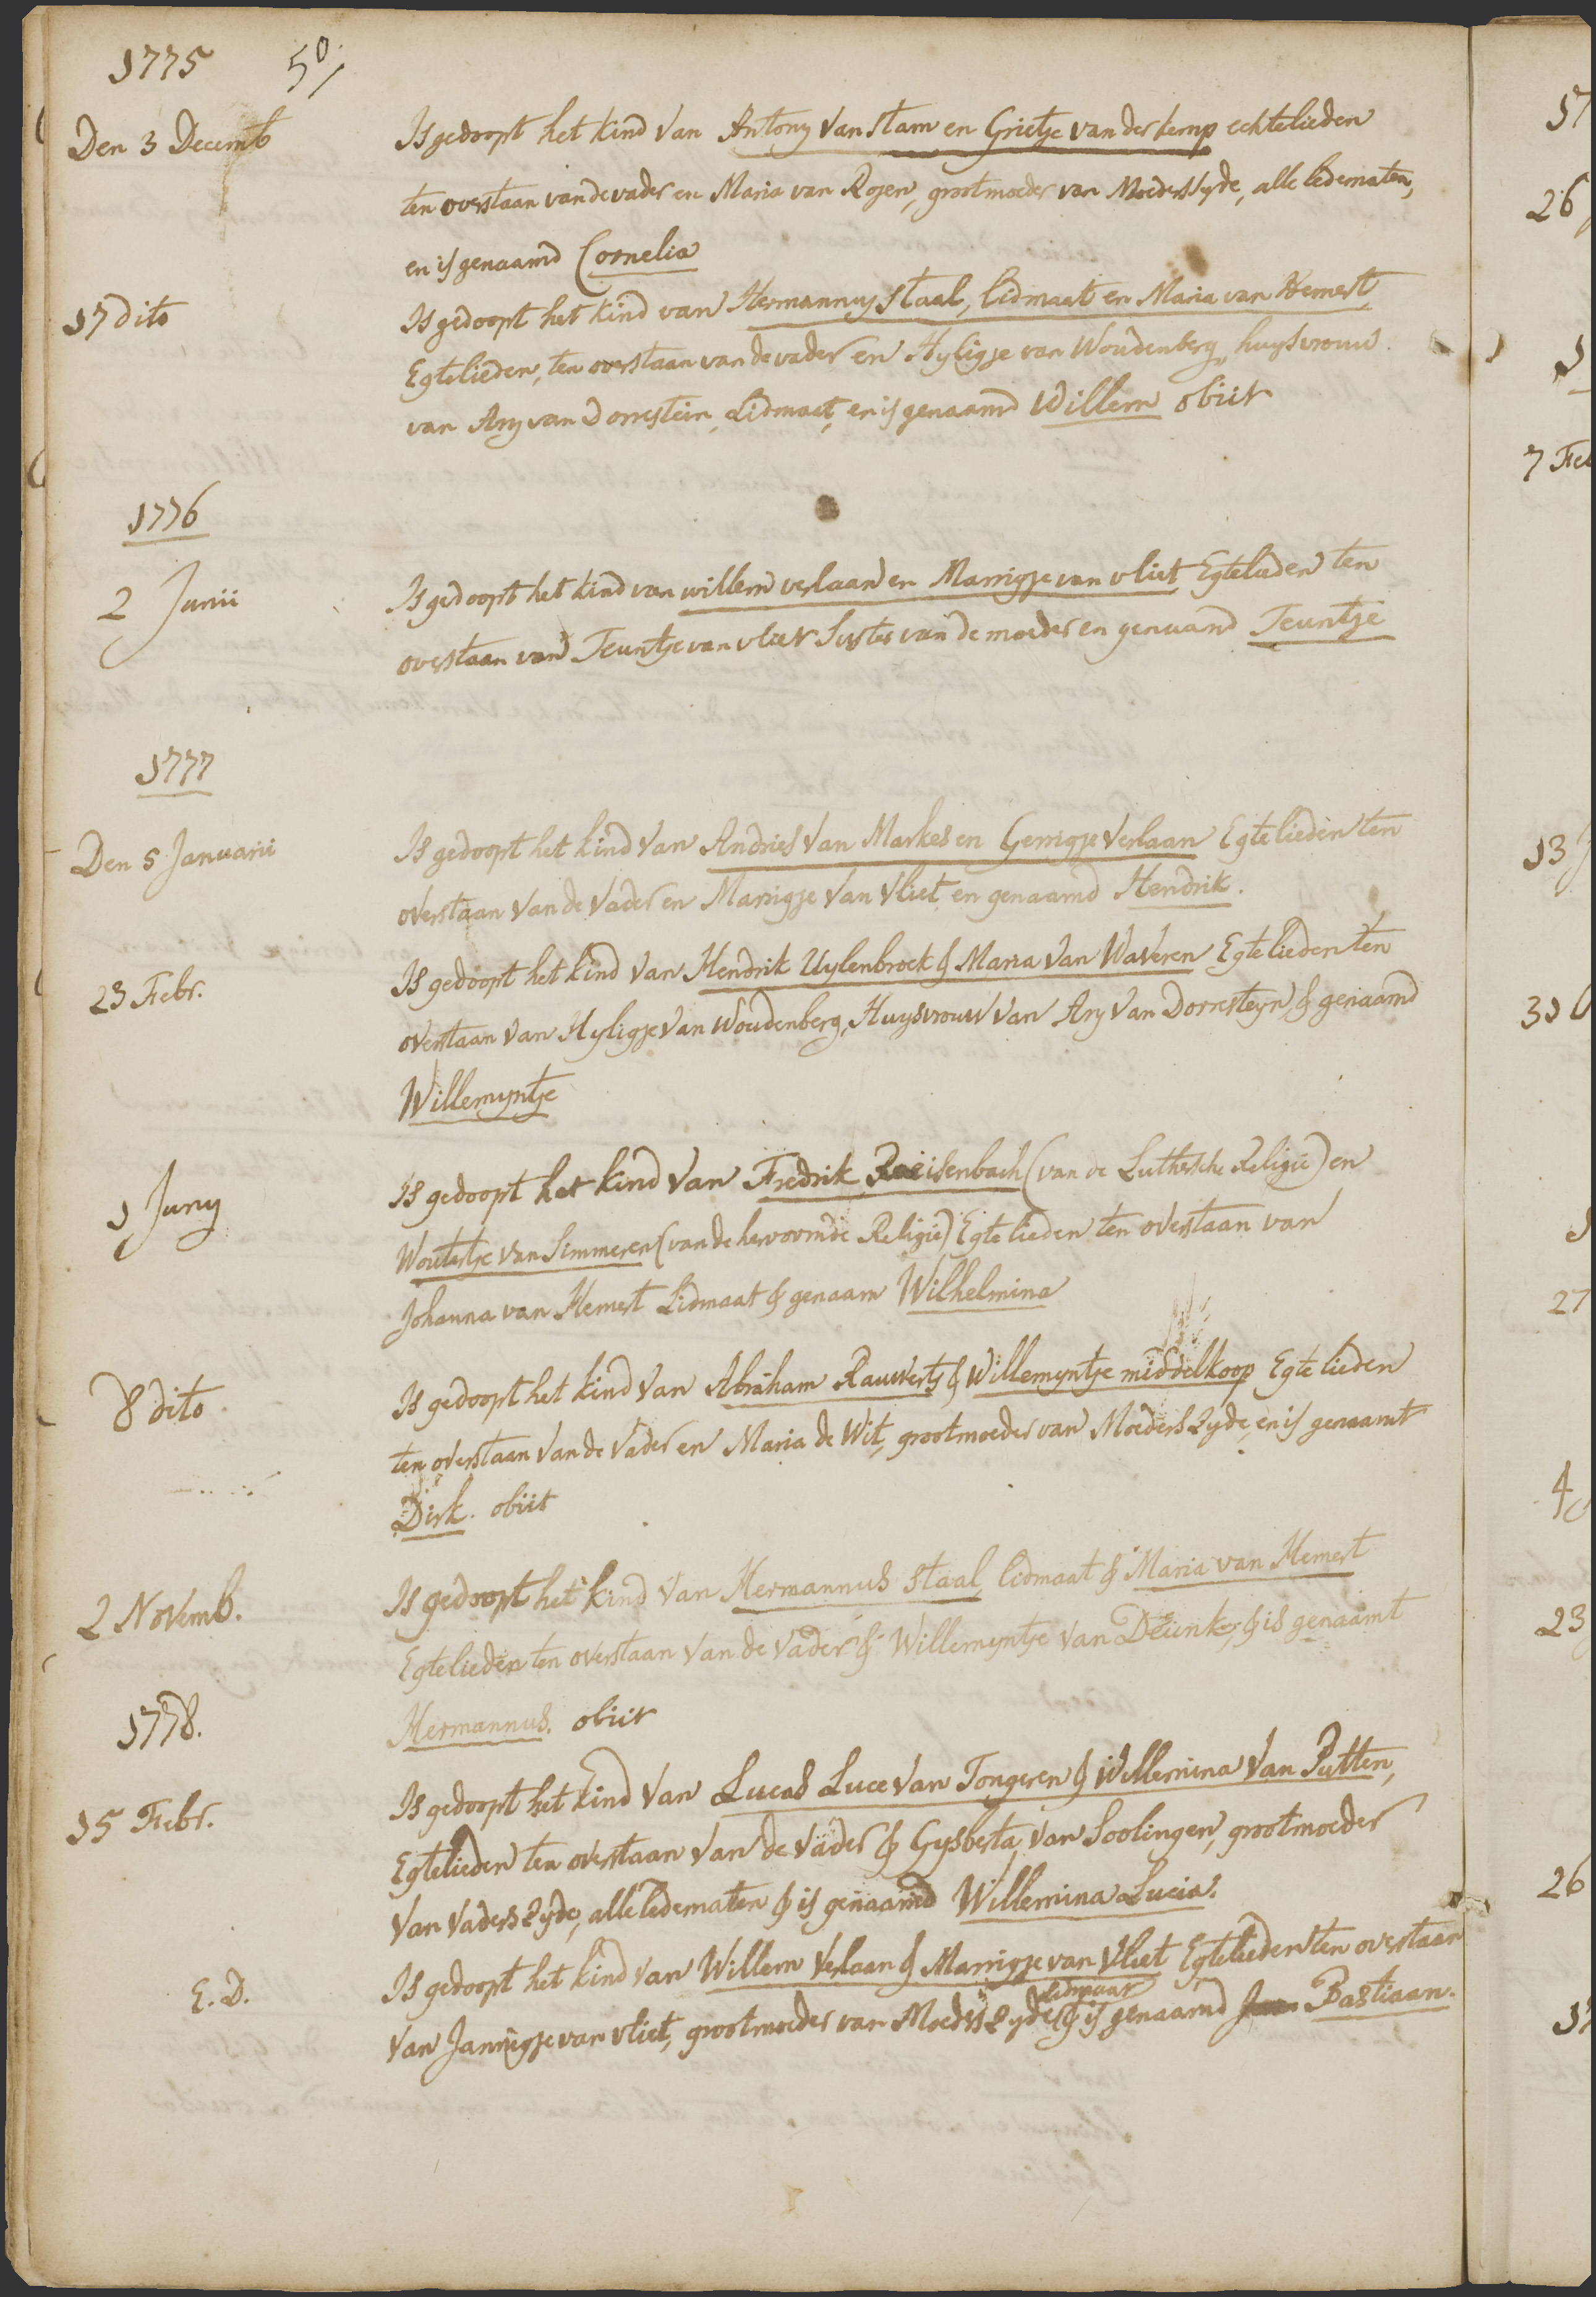 1775 50/
Den 3 Decemb Is gedoopt het kind van Antony van stam en Grietje van der kemp echtelieden
ten overstaan van de vader en Maria van Rozen, grootmoeder van Moeders syde, alle ledematen,
en is genaamd Cornelia
17 dito Is gedoopt het kind van Hermannus Staal, lidmaat en Maria van Hemert
Egtelieden, ten overstaan van de vader en Hyligje van Woudenberg, huysvrouw
van Ary van Dorrestein, Lidmaet, en is genaamd Willem obiit
1776
2 Junii Is gedoopt het kind van willem verlaan en Marrigje van vliet Egtelieden ten
overstaan van Teuntje van vliet Suster van de moeder en genaamd Teuntje
1777
Den 5 Januarii Is gedoopt het kind van Andries van Markes en Gerrigje Verlaan Egtelieden ten
overstaan van de Vader en Marrigje van Vliet en genaamd Hendrik.
23 Febr. Is gedoopt het kind van Hendrik Uylenbroek & Maria van Waveren Egtelieden ten
overstaan van Hyligje van Woudenberg, Huysvrouw van Ary van Dorresteyn & genaamd
Willemyntje
1 Juny Is gedoopt het kind van Fredrik isenbach (van de Luthersche Religie) en
Woutertje van Simmeren (van de hervoormde Religie) Egtelieden ten overstaan van
Johanna van Hemert Lidmaat & genaam Wilhelmina
8 dito Is gedoopt het kind van Abraham Rauwerts & Willemyntje middelkoop Egtelieden
ten overstaan van de Vader en Maria de Wit, grootmoeder van Moeders Zyde, en is genaamt
Dirk. obiit
2 Novemb. Is gedoopt het kind van Hermannus Staal, lidmaat & Maria van Hemert
Egtelieden ten overstaan van de Vader & Willemyntje van & is genaamt
Hermannus. obiit
1778.
15 Febr. Is gedoopt het kind van Lucas Luce van Tongeren & Willemina van Putten,
Egtelieden ten overstaan van de Vader & Gysberta van Soolingen, grootmoeder
van Vaders Zyde, alle ledematen & is genaamd Willemina Lucia.
E. D. Is gedoopt het kind van Willem Verlaan & Marrigje van Vliet Egtelieden ten overstaan
lidmaat
van Jannigje van vliet, grootmoeder van Moeders Zyde & is genaamd Bastiaan.
17
26
7 Feb
13
31
27
4
23
26